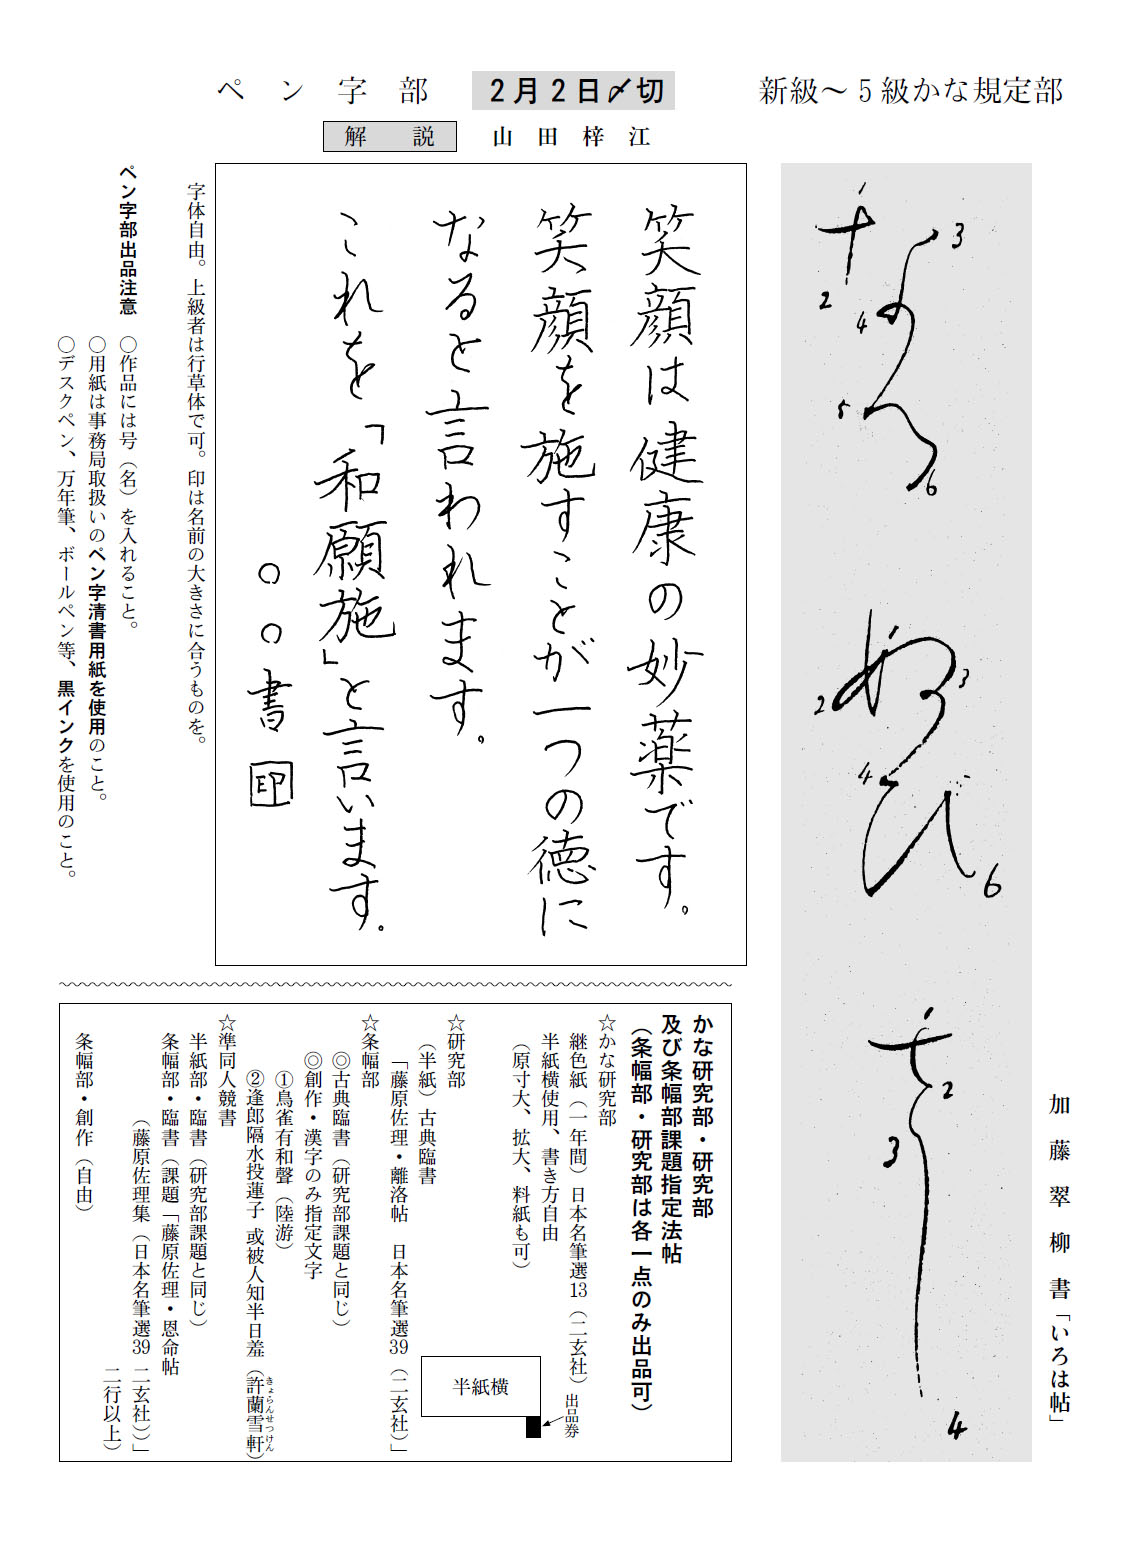 新級～5級かな規定部
ペン字部
2月2日〆切
解説
山田梓江
加藤翠柳書「いろは帖」
1
2
3
4
5
6
1
2
3
4
6
1
2
3
4
笑顔は健康の妙薬です。
笑顔を施すことが一つの徳に
なると言われます。
これを「和願施」と言います。
○○書 印
字体自由。上級者は行草体で可。印は名前の大きさに合うものを。
ペン字部出品注意
○作品には号（名）を入れること。
○用紙は事務局取扱いのペン字清書用紙を使用のこと。
○デスクペン、万年筆、ボールペン等、黒インクを使用のこと。
かな研究部・研究部
及び条幅部課題指定法帖
（条幅部・研究部は各一点のみ出品可）
☆かな研究部
継色紙（一年間）日本名筆選13（二玄社）
半紙横使用、書き方自由
（原寸大、拡大、料紙も可）
半紙横
出品券
☆研究部
（半紙）古典臨書
「藤原佐理・離洛帖　日本名筆選39（二玄社）」
☆条幅部
◎古典臨書（研究部課題と同じ）
◎創作・漢字のみ指定文字
①鳥雀有和聲（陸游）
②逢郎隔水投蓮子 或被人知半日羞（許蘭雪軒）
きょらんせつけん
☆準同人競書
半紙部・臨書（研究部課題と同じ）
条幅部・臨書（課題「藤原佐理・恩命帖
（藤原佐理集（日本名筆選39 二玄社））」
二行以上）
条幅部・創作（自由）